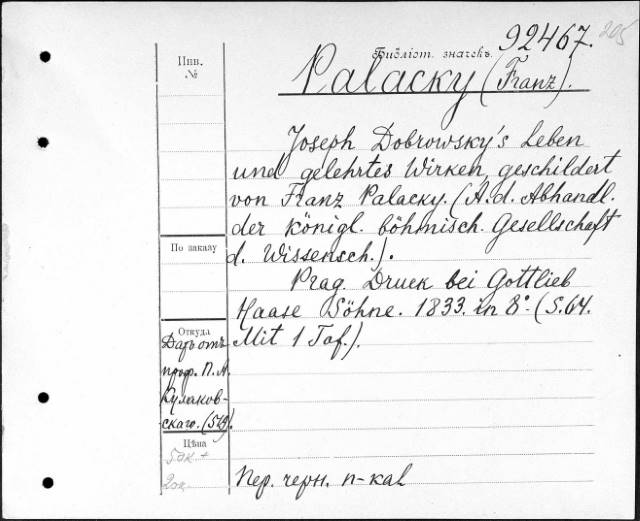 92467. 205
Библіот. значекъ.
Palacky (Franz).
Joseph Dobrowsky's Leben
und gelehrtes Wirken, geschildert
von Franz Palacky. (A. d. Abhandl.
der königl. böhmisch. Gesellschaft
d. Wissensch.).
Prag. Druck bei Gottlieb
Haase Söhne. 1833. in 8°. (S. 64.
Mit 1 Taf.).
Пер. черн. п-kal
Инв.
№
По заказу
Откуда
Даръ отъ
проф. П. А.
Кулаков-
скаго. (549).
Цѣна
50к +
20к